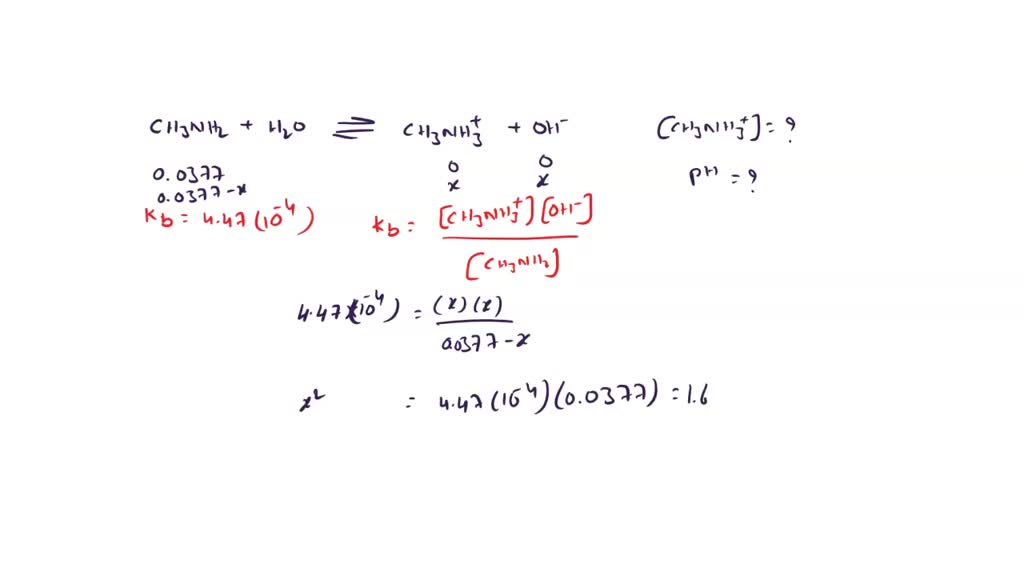 CH3NH2 + H2O ⇌ CH3NH3+ + OH- [CH3NH3+] = ?
0.0377 0 0 PH = ?
0.0377-x x x
Kb = 4.47 (10^-4) Kb = [CH3NH3+][OH-] / [CH3NH2]
4.47 x (10^-4) = (x)(x) / 0.0377-x
x^2 = 4.47 (10^-4)(0.0377) = 1.6